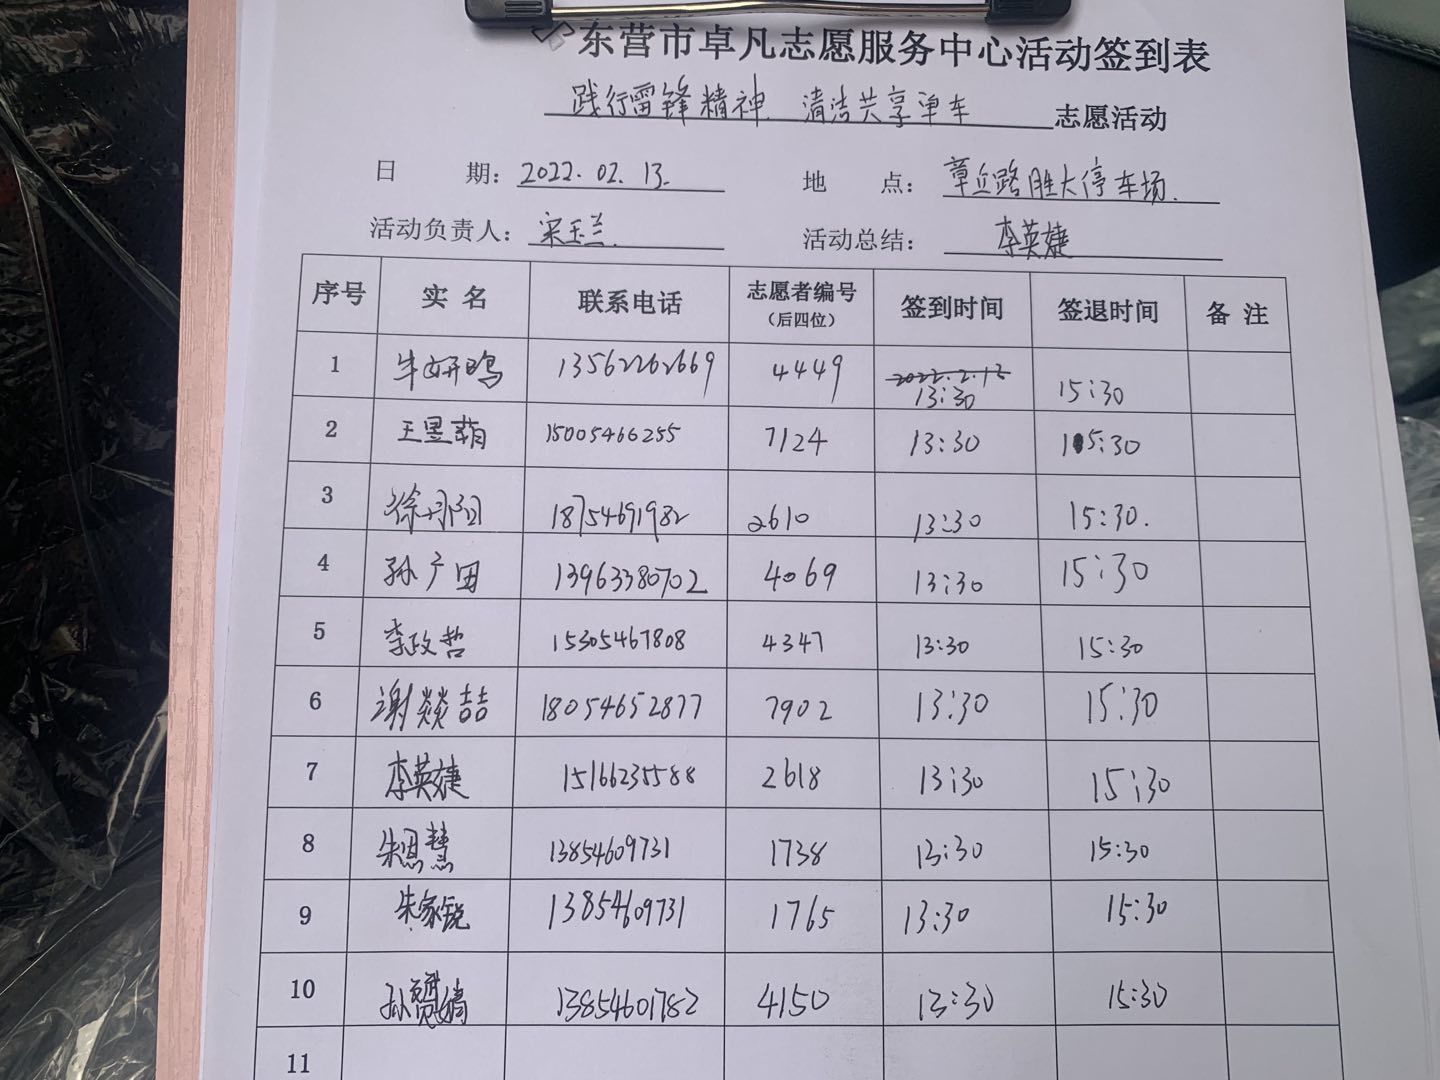 东营市卓凡志愿服务中心活动签到表
践行雷锋精神 清洁共享单车 志愿活动
日 期：2022.02.13. 地 点：章丘路胜大停车场.
活动负责人：宋玉兰. 活动总结：李英婕
序号 实名 联系电话 志愿者编号（后四位） 签到时间 签退时间 备注
1 牛妍鸣 13562262669 4449 2022.2.13 13:30 15:30
2 王昱菲 15005466255 7124 13:30 15:30
3 徐丹阳 18754691982 2610 13:30 15:30.
4 孙广田 13963380702 4069 13:30 15:30
5 李政哲 15305467808 4347 13:30 15:30
6 谢燚喆 18054652877 7902 13:30 15:30
7 李英婕 15166235588 2618 13:30 15:30
8 朱恩慧 13854609731 1738 13:30 15:30
9 朱家锐 13854609731 1765 13:30 15:30
10 孙 婧 13854601782 4150 13:30 15:30
11